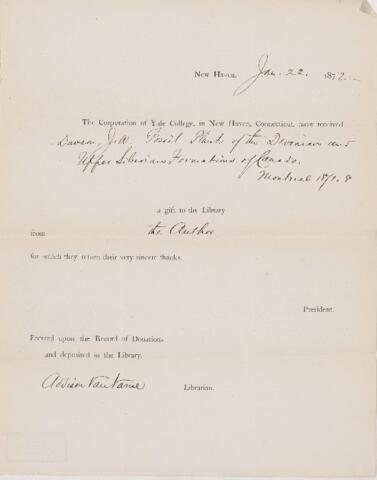 New Haven, Jan. 22. 1872.
The Corporation of Yale College, in New Haven, Connecticut, have received
Dawson, J. W. Fossil Plants of the Devonian and
Upper Silurian Formations of Canada.
Montreal 1871. 8
a gift to the Library
from the Author
for which they return their very sincere thanks.
President.
Entered upon the Record of Donations
and deposited in the Library.
Addison Van Name
Librarian.